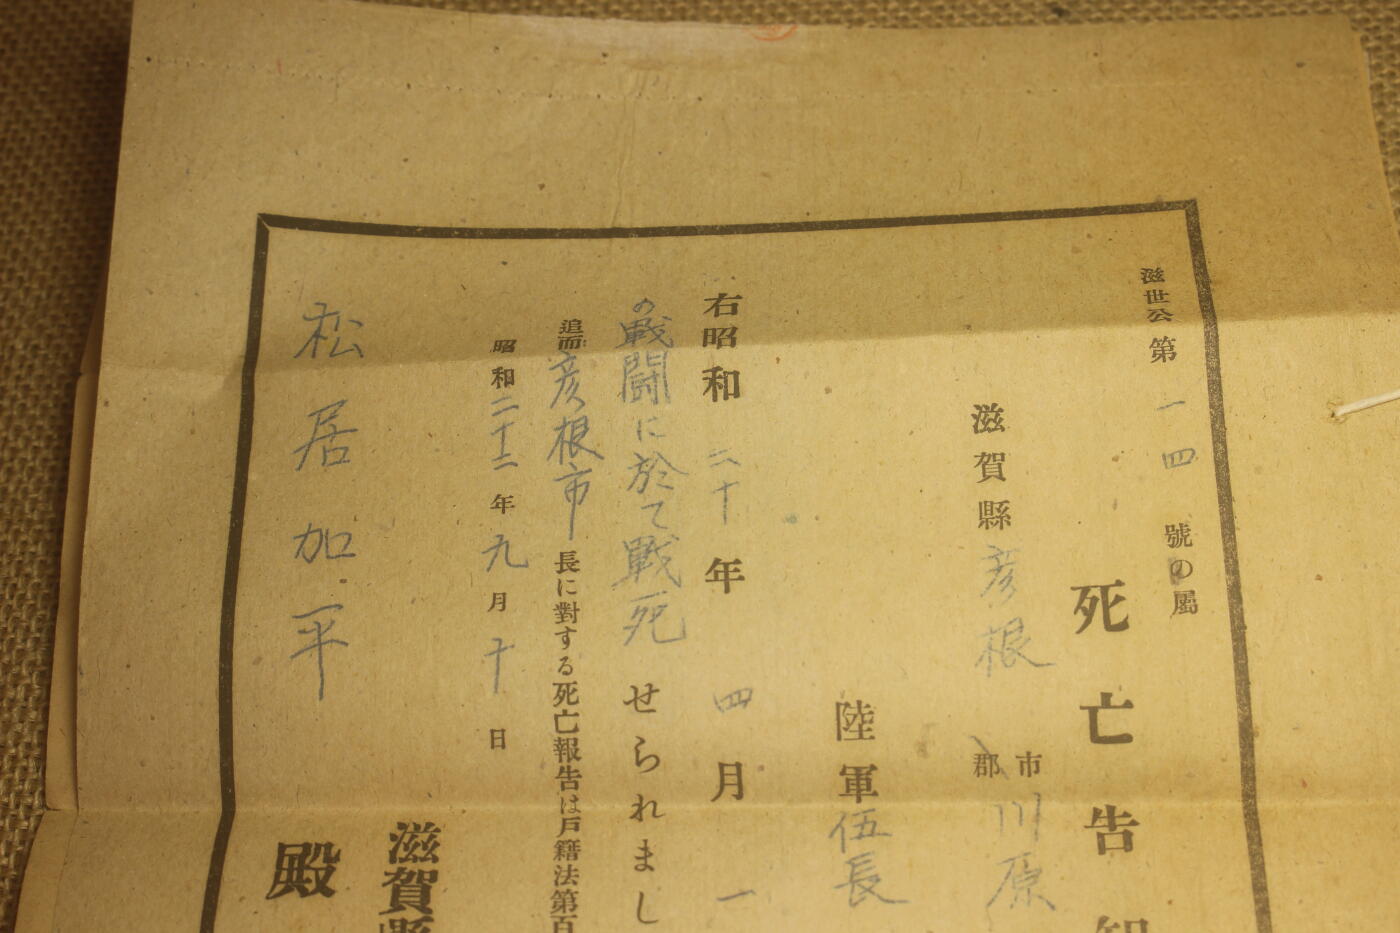 滋世公第一四號の屬
死亡告知
滋賀縣彦根市郡川原
陸軍伍長
右昭和二十年四月一
の戰闘に於て戰死せられまし
追而彦根市長に對する死亡報告は戸籍法第百
昭和二十二年九月十日
滋賀縣
松居加平殿